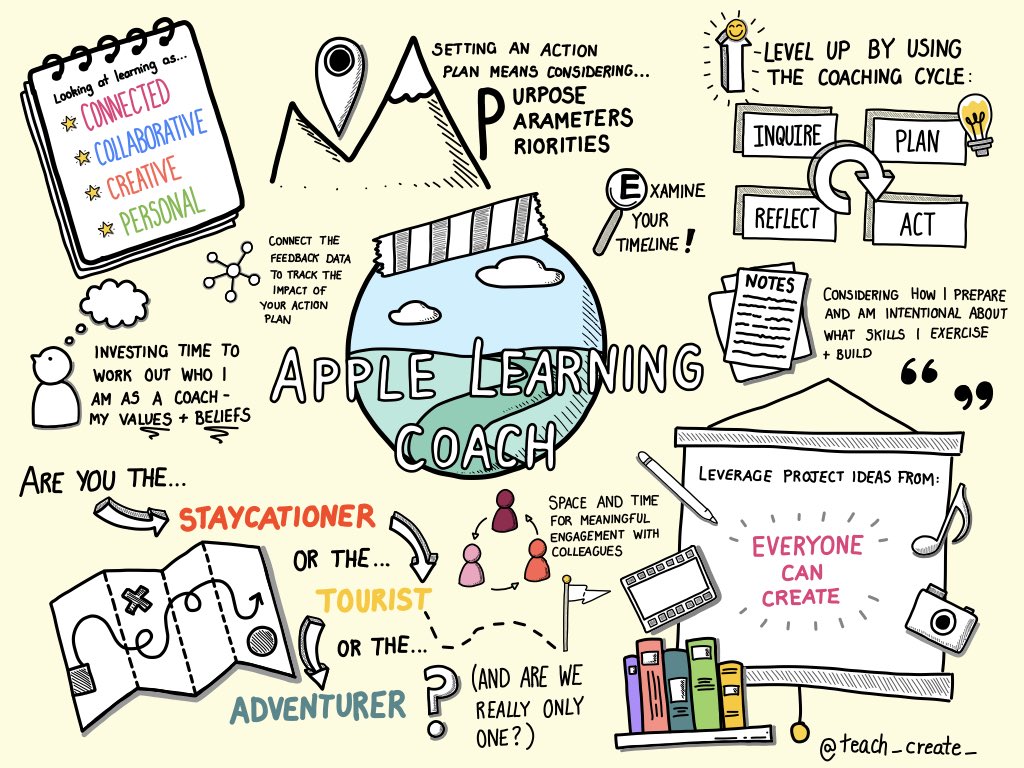 Looking at learning as...
CONNECTED
COLLABORATIVE
CREATIVE
PERSONAL
SETTING AN ACTION
PLAN MEANS CONSIDERING...
PURPOSE
PARAMETERS
PRIORITIES
LEVEL UP BY USING
THE COACHING CYCLE:
INQUIRE
PLAN
REFLECT
ACT
EXAMINE
YOUR
TIMELINE!
CONNECT THE
FEEDBACK DATA
TO TRACK THE
IMPACT OF
YOUR ACTION
PLAN
NOTES
CONSIDERING HOW I PREPARE
AND AM INTENTIONAL ABOUT
WHAT SKILLS I EXERCISE
+ BUILD
INVESTING TIME TO
WORK OUT WHO I
AM AS A COACH -
MY VALUES + BELIEFS
APPLE LEARNING
COACH
ARE YOU THE...
STAYCATIONER
OR THE...
TOURIST
OR THE...
ADVENTURER ?
(AND ARE WE
REALLY ONLY
ONE?)
SPACE AND TIME
FOR MEANINGFUL
ENGAGEMENT WITH
COLLEAGUES
“ ”
LEVERAGE PROJECT IDEAS FROM:
EVERYONE
CAN
CREATE
@teach_create_